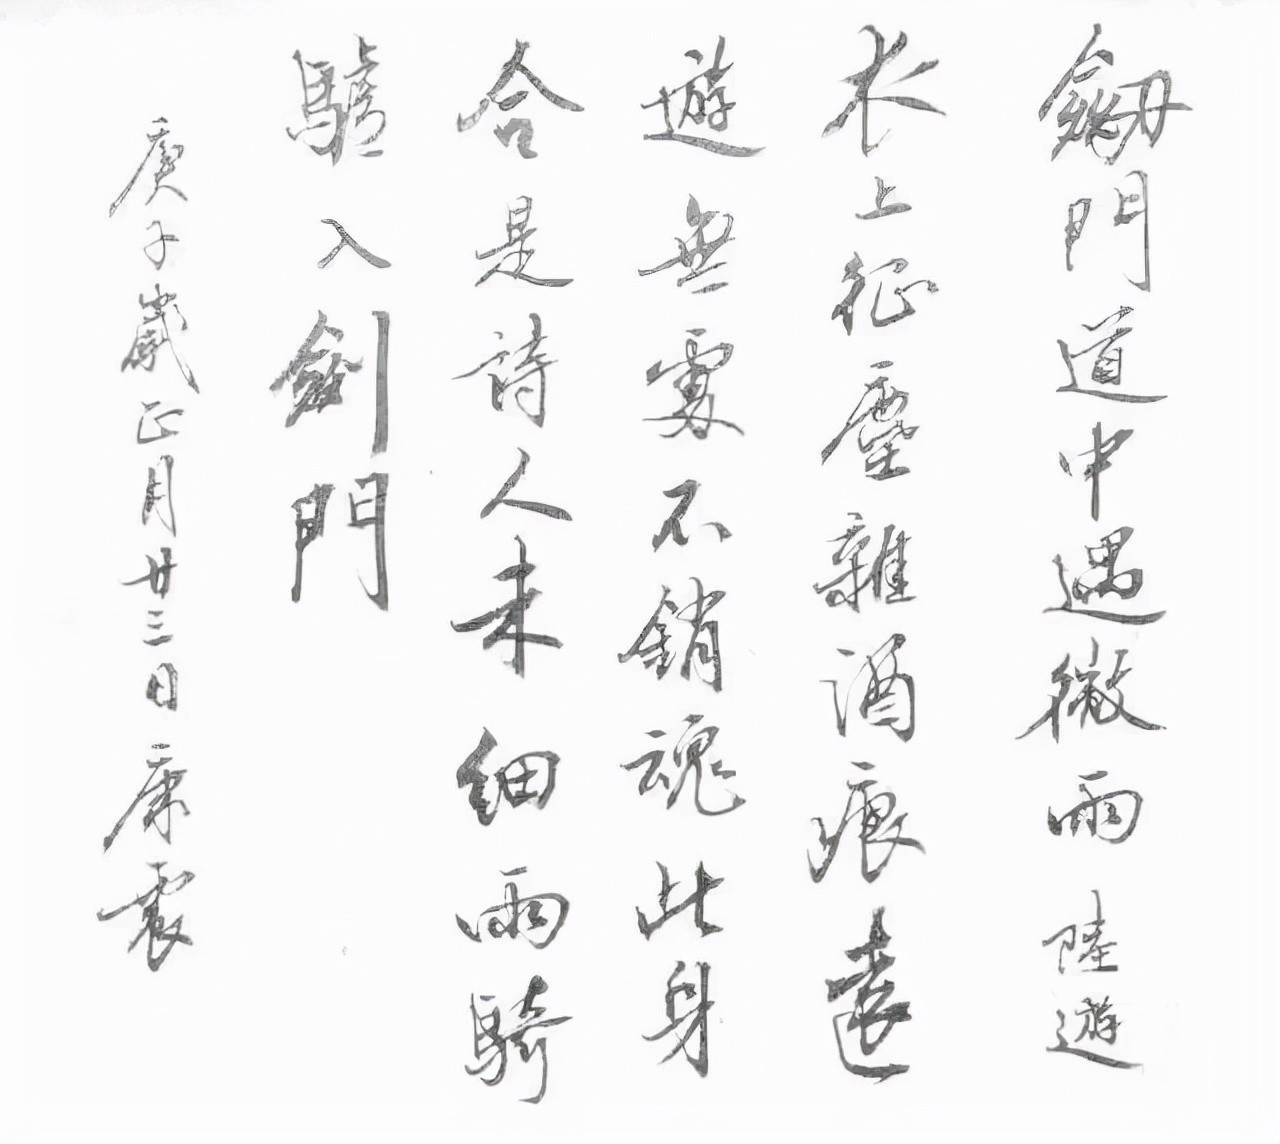 劔門道中遇微雨 陸遊
衣上征塵雜酒痕遠
遊無處不銷魂此身
合是詩人未細雨騎
驢入劍門
庚子歲正月廿三日康震